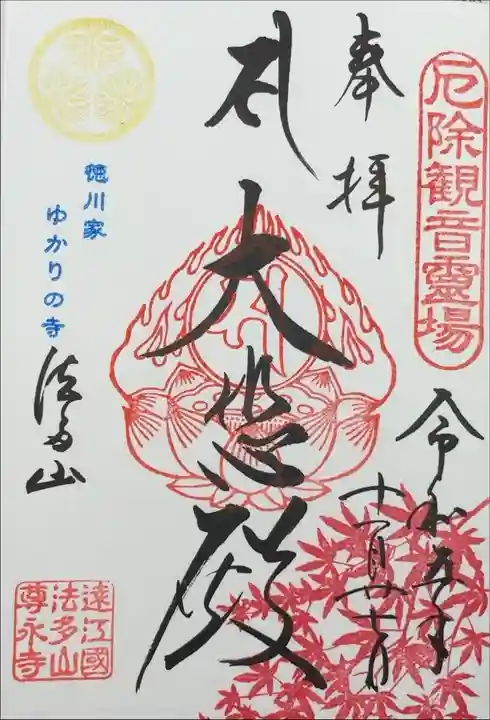 厄除観音霊場
奉拝
令和五年
十一月廿一日
大悲殿
徳川家
ゆかりの寺
法多山
遠江國
法多山
尊永寺